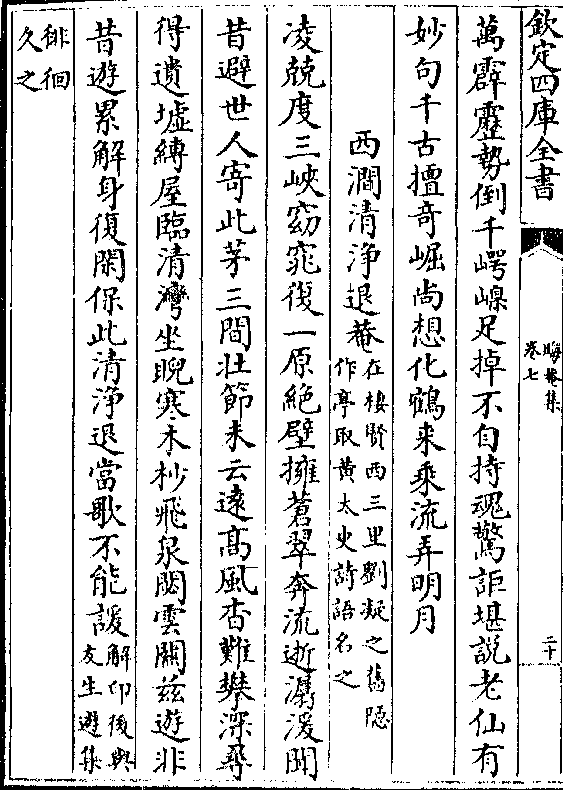 欽定四庫全書
晦菴集
卷七
二十
萬霹靂勢倒千崿嵲足掉不自持魂驚詎堪說老仙有
妙句千古擅竒崛尚想化鶴来乗流弄明月
西澗清浄退菴
在棲賢西三里劉凝之舊隠
作亭取黄太史詩語名之
凌兢度三峽窈窕復一原絶壁擁蒼翠奔流逝潺湲聞
昔避世人寄此茅三間壮節未云逺髙風杳難攀深尋
得遺墟縛屋臨清灣坐睨寒木杪飛泉閟雲闗兹遊非
昔遊累解身復閑保此清浄退當歌不能諼
解印後與
友生遊集
徘徊
久之